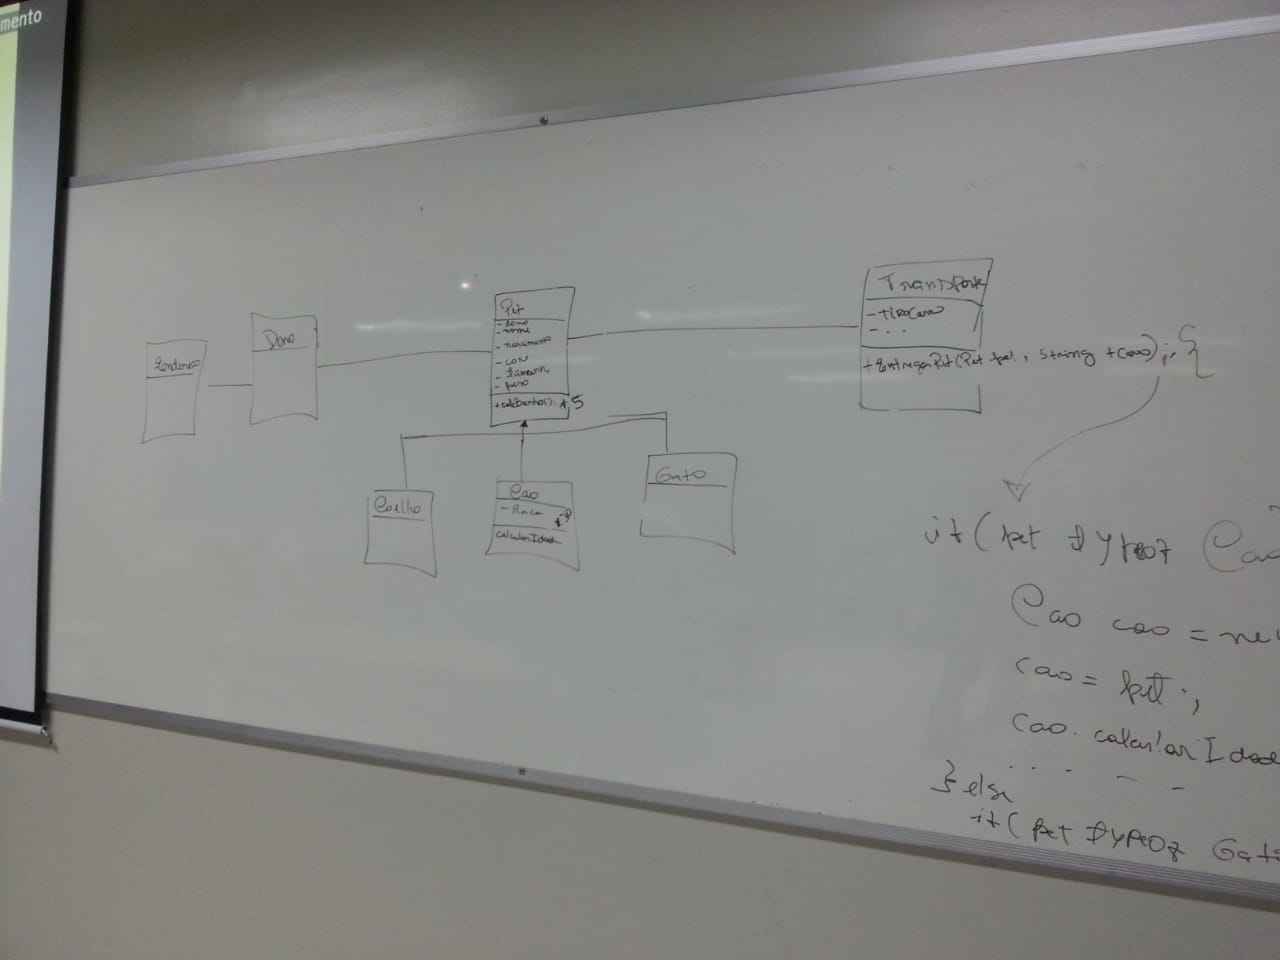 mento
Endereco
Dono
Pet
- dono
- nome
- nascimento
- cor
- tamanh
- peso
+ calcBanho(): * 5
Transporte
- tipoCarro
- ...
+ EntregarPet(Pet pet, String tCarro);{
Coelho
Cao
- Raca
calcularIdade
Gato
if( pet typeof Cao
Cao cao = ne
cao = pet ;
cao. calcularIdade
} else
if( pet typeof Gato